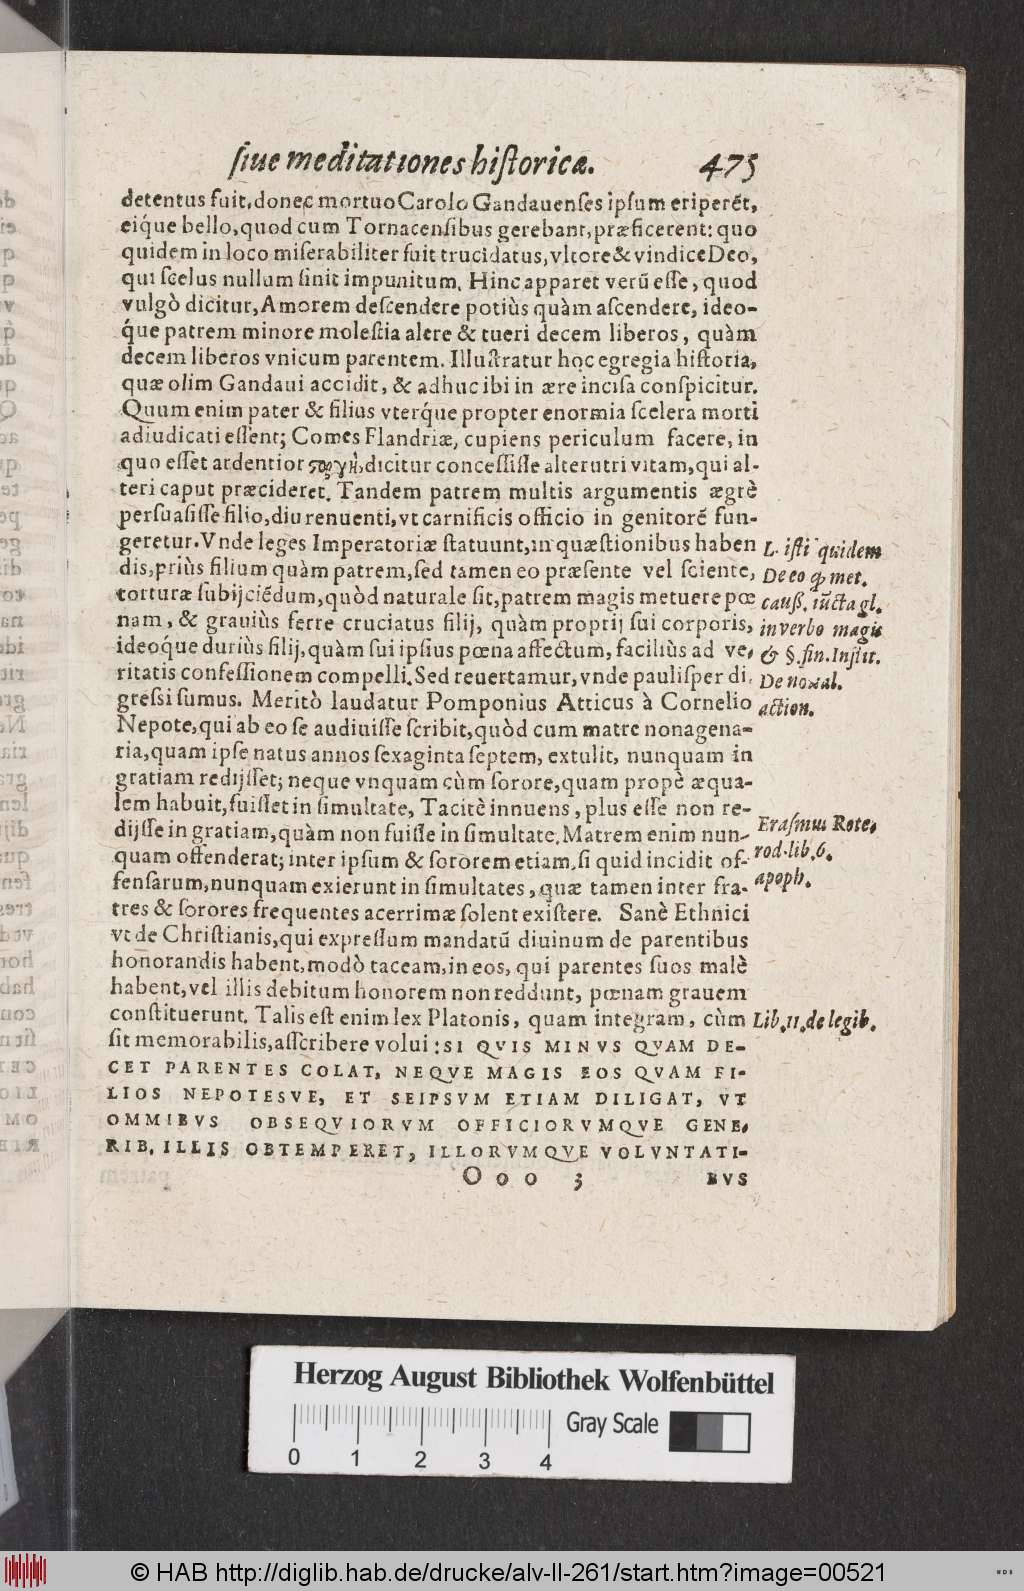 ſiue meditationes hiſtoricæ. 475
detentus fuit, donec mortuo Carolo Gandauenſes ipſum eriperẽt,
eiq́ue bello, quod cum Tornacenſibus gerebant, præficerent: quo
quidem in loco miſerabiliter fuit trucidatus, vltore & vindice Deo,
qui ſcelus nullum ſinit impunitum. Hinc apparet verũ eſſe, quod
vulgò dicitur, Amorem deſcendere potiùs quàm aſcendere, ideo-
q́ue patrem minore moleſtia alere & tueri decem liberos, quàm
decem liberos vnicum parentem. Illuſtratur hoc egregia hiſtoria,
quæ olim Gandaui accidit, & adhuc ibi in ære inciſa conſpicitur.
Quum enim pater & filius vterq́ue propter enormia ſcelera morti
adiudicati eſſent; Comes Flandriæ, cupiens periculum facere, in
quo eſſet ardentior ϛοργὴ, dicitur conceſſiſſe alterutri vitam, qui al-
teri caput præcideret. Tandem patrem multis argumentis ægrè
perſuaſiſſe filio, diu renuenti, vt carnificis officio in genitorẽ fun-
geretur. Vnde leges Imperatoriæ ſtatuunt, in quæſtionibus haben
dis, priùs filium quàm patrem, ſed tamen eo præſente vel ſciente,
torturæ ſubijciẽdum, quòd naturale ſit, patrem magis metuere pœ
nam, & grauiùs ferre cruciatus filij, quàm proprij ſui corporis,
ideoq́ue duriùs filij, quàm ſui ipſius pœna affectum, faciliùs ad ve-
ritatis confeſſionem compelli. Sed reuertamur, vnde pauliſper di-
greſſi ſumus. Meritò laudatur Pomponius Atticus à Cornelio
Nepote, qui ab eo ſe audiuiſſe ſcribit, quòd cum matre nonagena-
ria, quam ipſe natus annos ſexaginta ſeptem, extulit, nunquam in
gratiam redijſſet; neque vnquam cùm ſorore, quam propè æqua-
lem habuit, fuiſſet in ſimultate, Tacitè innuens, plus eſſe non re-
dijſſe in gratiam, quàm non fuiſſe in ſimultate. Matrem enim nun-
quam offenderat; inter ipſum & ſororem etiam, ſi quid incidit of-
fenſarum, nunquam exierunt in ſimultates, quæ tamen inter fra-
tres & ſorores frequentes acerrimæ ſolent exiſtere. Sanè Ethnici
vt de Chriſtianis, qui expreſſum mandatũ diuinum de parentibus
honorandis habent, modò taceam, in eos, qui parentes ſuos malè
habent, vel illis debitum honorem non reddunt, pœnam grauem
conſtituerunt. Talis eſt enim lex Platonis, quam integram, cùm
ſit memorabilis, aſſcribere volui: SI QVIS MINVS QVAM DE-
CET PARENTES COLAT, NEQVE MAGIS EOS QVAM FI-
LIOS NEPOTESVE, ET SEIPSVM ETIAM DILIGAT, VT
OMMIBVS OBSEQVIORVM OFFICIORVMQVE GENE-
RIB. ILLIS OBTEMPERET, ILLORVMQVE VOLVNTATI-
Ooo 3 BVS
L. iſti quidem
De eo ꝙ met.
cauſſ. iũcta gl.
in verbo magis
& §. fin. Inſtit.
De noxal.
action.
Eraſmus Rote-
rod. lib. 6.
apoph.
Lib. 11. de legib.
Herzog August Bibliothek Wolfenbüttel
0 1 2 3 4
Gray Scale
© HAB http://diglib.hab.de/drucke/alv-ll-261/start.htm?image=00521